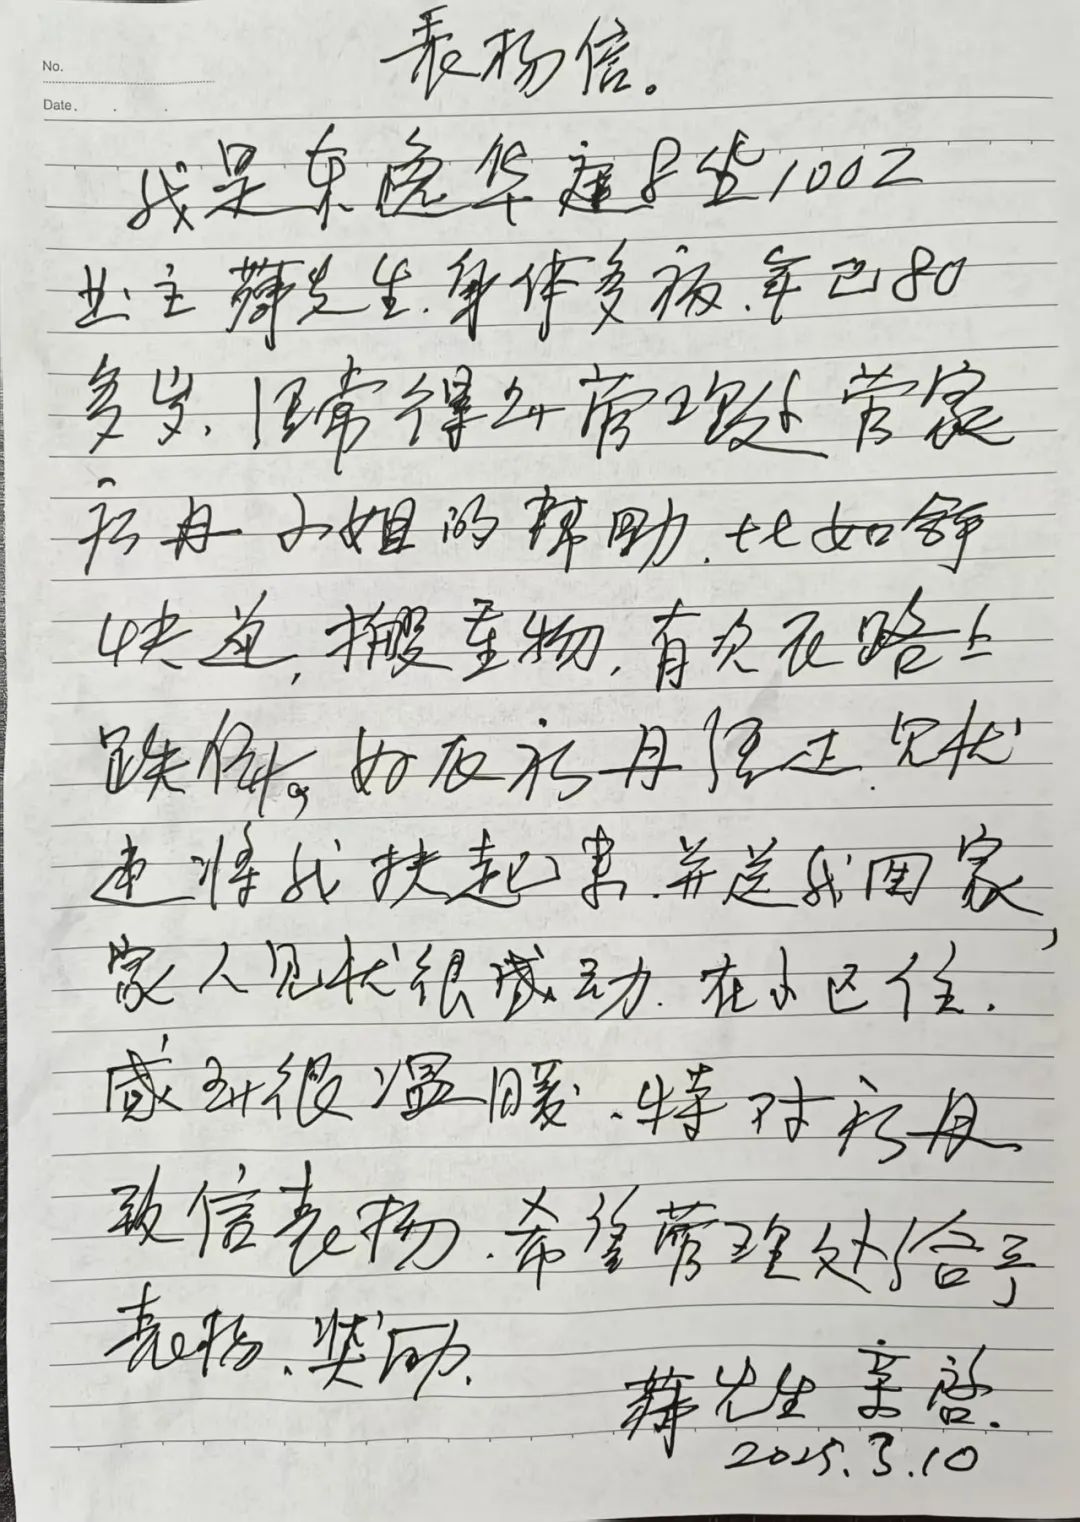 No.
Date.
表扬信。
我是东逸华庭8坐1002
业主薛先生.身体多病.年已80
多岁、经常得到管理处管家
丹小姐的帮助.比如拿
快逓,搬重物.有次在路上
跌倒。好在 丹经过.见状
速将我扶起来.并送我回家,
家人见状很感动.在小区住.
感到很温暖.特对 丹
致信表扬.希望管理处给予
表扬、奖励.
薛先生 亲启.
2025.3.10